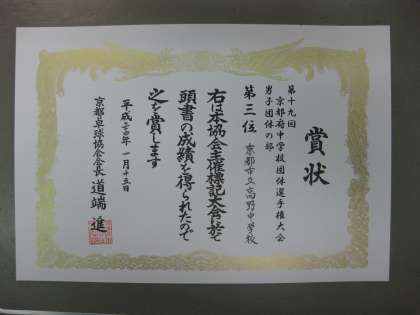 賞状
第十九回
京都府中学校団体選手権大会
男子団体の部
第三位 京都市立高野中学校
右は本協会主催標記大会に於て
頭書の成績を得られたので
之を賞します
平成二十四年 一月十五日
京都卓球協会会長 道端 進